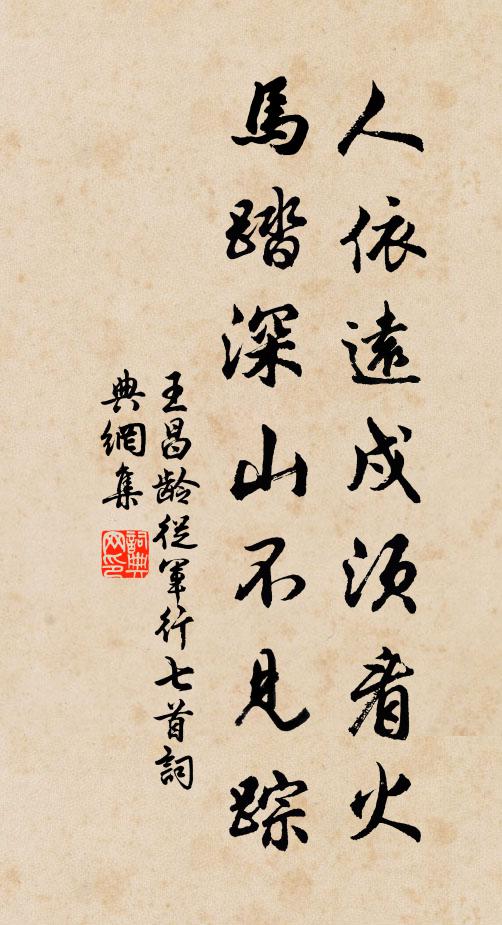 人依遠戍須看火
馬踏深山不見踪
王昌齡從軍行七首詞
典網集
詞典
网印